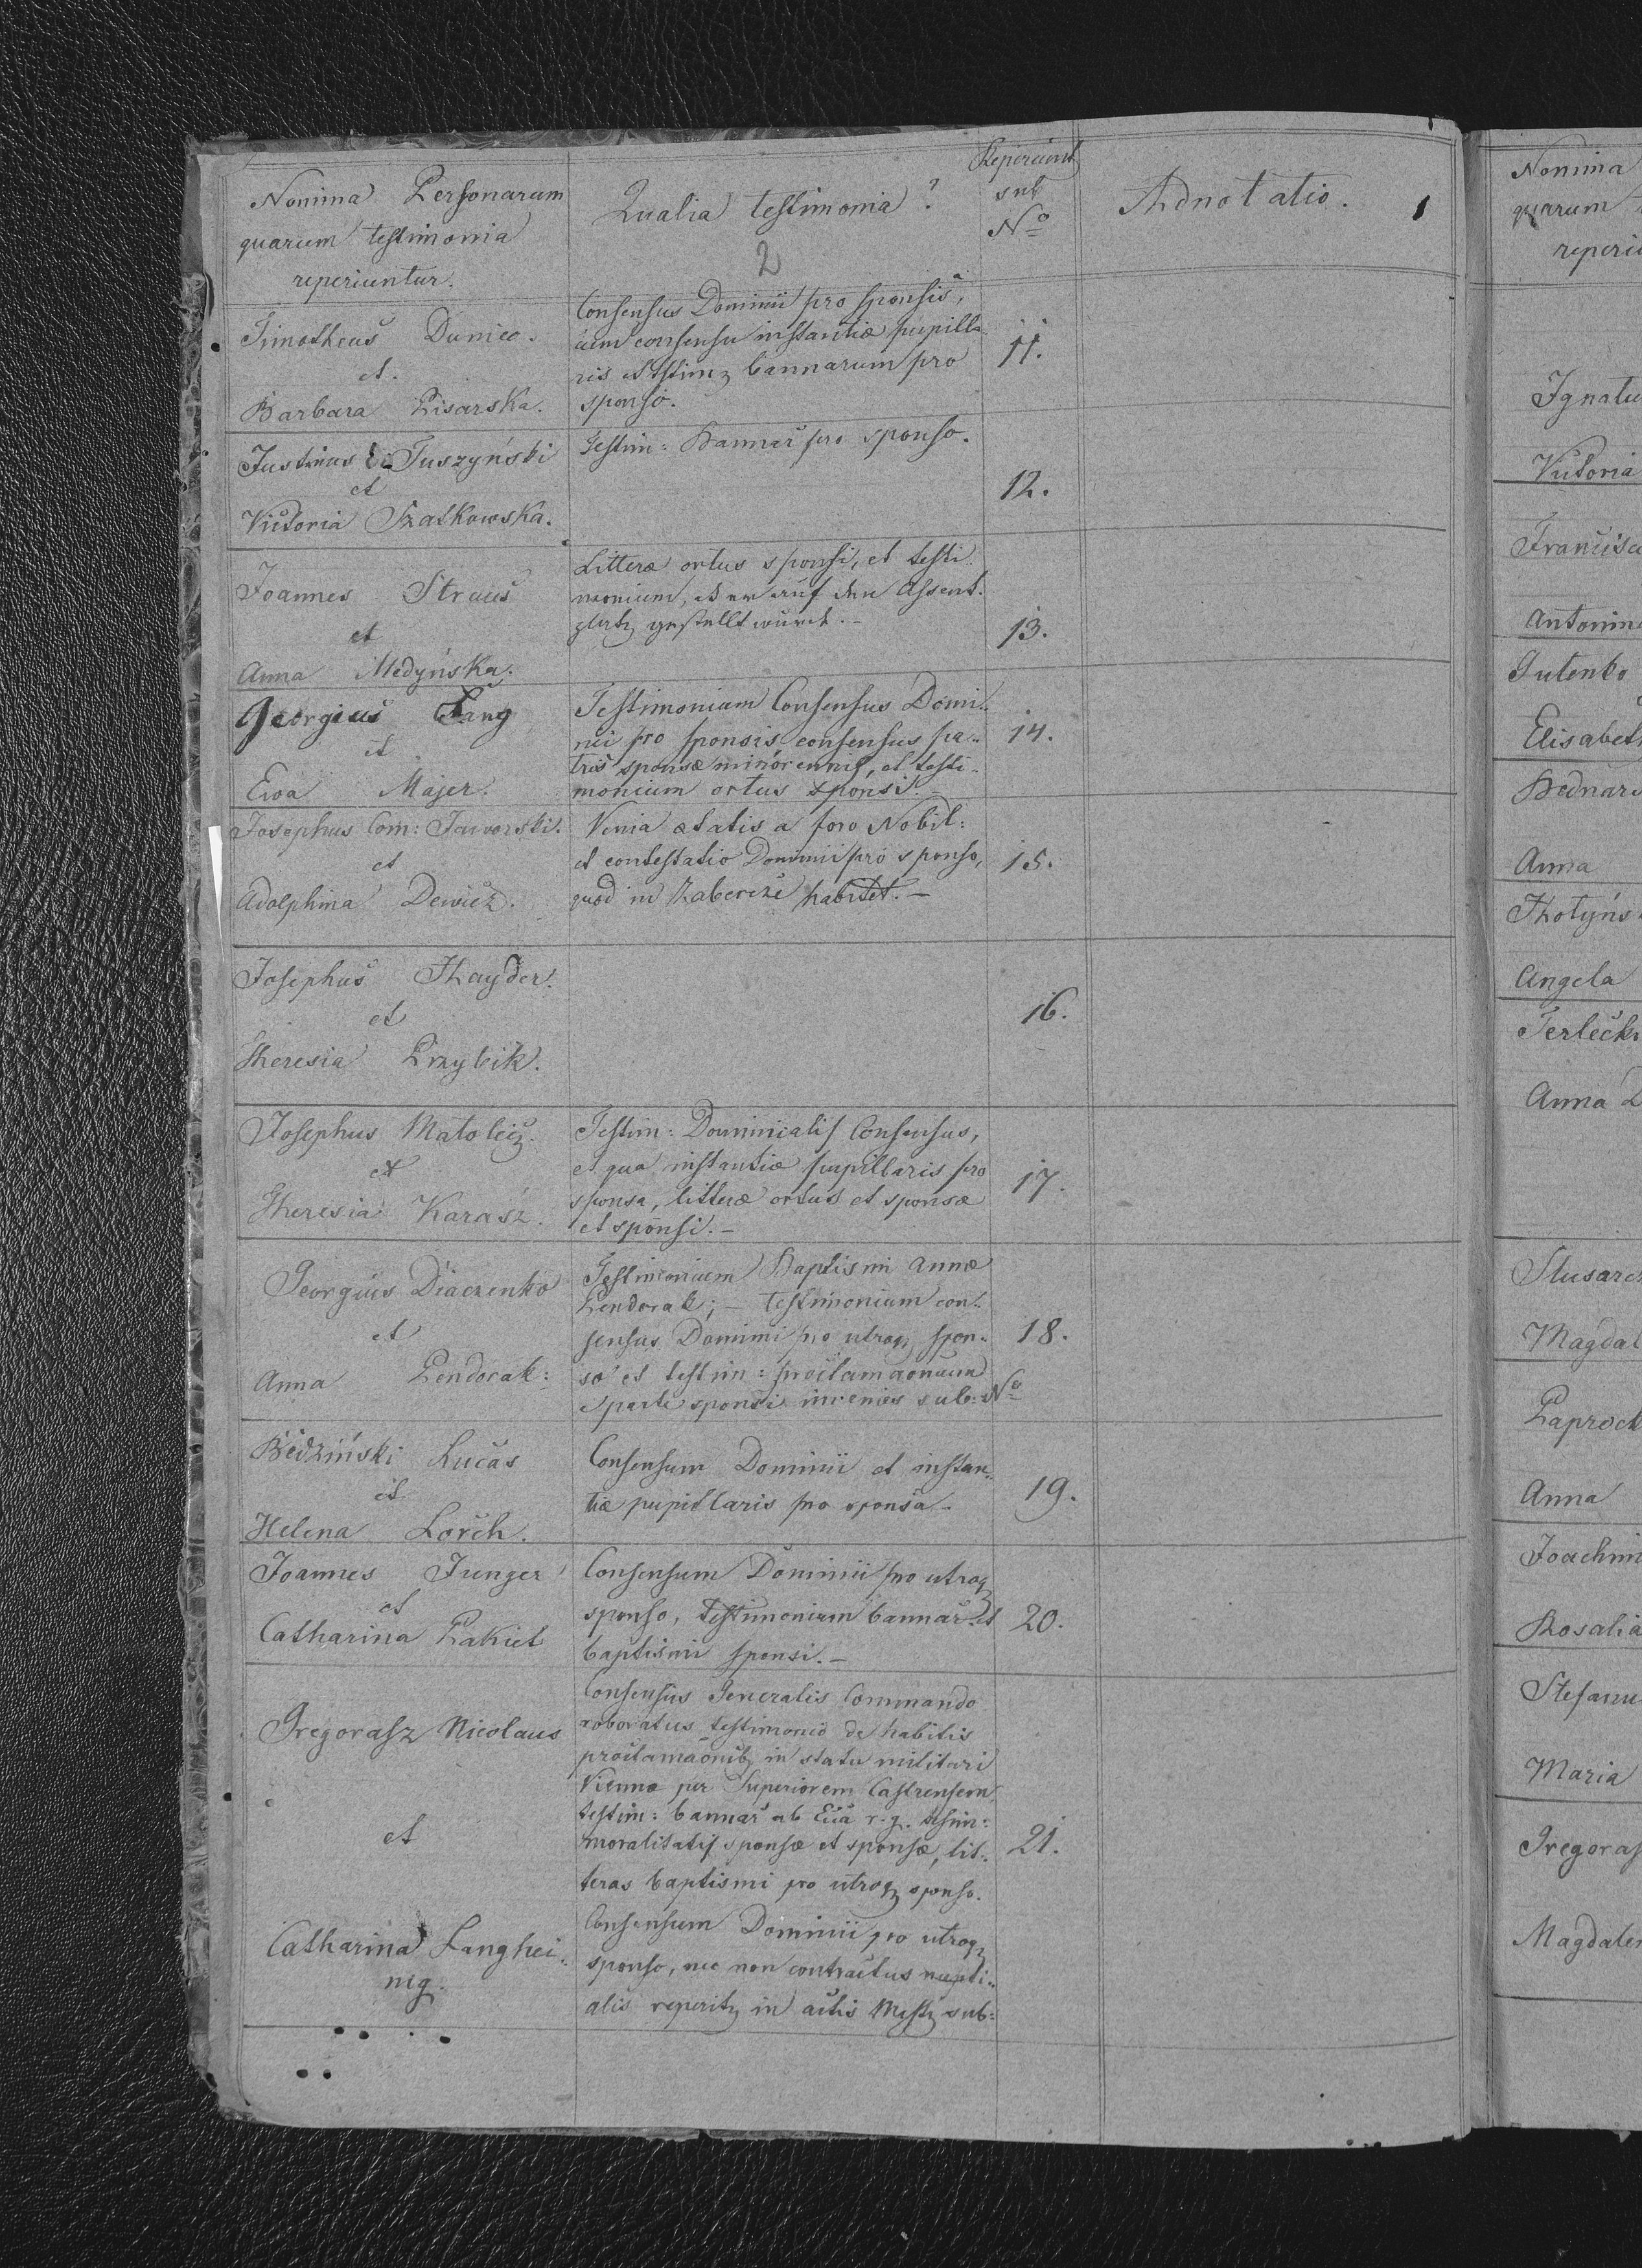 Nomina Personarum
quarum testimonia
reperiuntur.
Qualia testimonia?
2
Reperiunt
sub
No
Adnotatio.
1
Timotheus Dunico.
et.
Barbara Pisarska.
Consensus Dominii pro sponsis,
cum consensu instantiæ pupilla-
ris et bannarum pro
sponso.
11.
Justinus Tuszyński
et
Victoria Szatkowska.
Testim: Bannar pro sponso.
12.
Joannes Straus
et
Anna Medyńska.
Litteræ ortus sponsi, et testi-
monium, er auf den Assent-
platz gestellt wurde.-
13.
Georgius Lang
et
Ewa Majer.
Testimonium Consensus Domi-
nii pro sponsis consensus pa-
tris sponsæ minorennis, et testi-
monium ortus sponsi.-
14.
Josephus Com: Jaworski.
et
Adolphina Dewicz.
Venia ætatis a foro Nobil:
et contestatio Dominii pro sponso,
quod in habitet.-
15.
Josephus Thayder.
et
Theresia Przybik.
16.
Josephus Matolicz.
et
Theresia Karasz.
Testim: Dominicalis Consensus,
et qua instantiæ pupillaris pro
sponsa, litteræ ortus et sponsæ
et sponsi.-
17.
Georgius Diaczenko
et
Anna Pendorak:
Testimonium Baptismi Annæ
Pendorak;- testimonium con-
sensus Dominii pro utroq spon-
so et testim: proclamaonum
parte sponsi invenies sub: No
18.
Bedziński Lucas
et
Helena Lorch.
Consensum Dominii et instan-
tiæ pupillaris pro sponsa.
19.
Joannes Junger
et
Catharina Pakiet
Consensum Dominii pro utroq
sponso, testimonium bannar et
baptismi sponsi.-
20.
Gregorasz Nicolaus
et
Catharina Langhei-
nig.
Consensus Generalis Commando
roboratus testimonio de habitis
proclamaonib in statu militari
Viennæ per Superiorem Castrensem
testim: bannar ab r.g. testim:
moralitatis sponsæ et sponsæ, lit-
teras baptismi pro utroq sponso.
Consensum Dominii pro utroq
sponso, nec non contractus nupti-
alis reperitz in actis sub:
21.
Nomina
quarum
Ignatu
Victoria
Francisc
Antonin
Elisabet
Bednar
Anna
Angela
Terlecki
Anna
Magdal
Paprock
Anna
Joachim
Rosalia
Stefanu
Maria
Gregoras
Magdalen